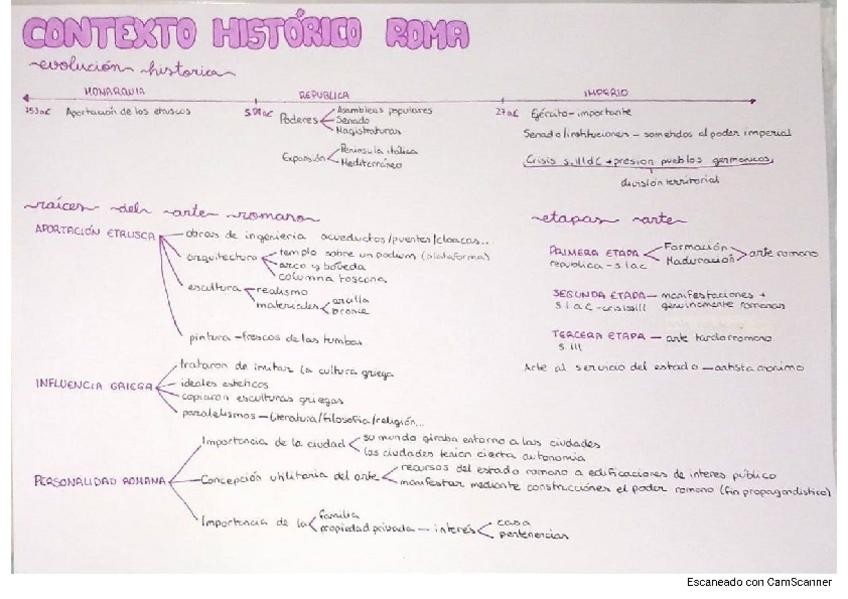 CONTEXTO HISTÓRICO ROMA
evolución historica
MONARQUIA REPUBLICA IMPERIO
753 a.C Aportación de los etruscos
509 a.C Poderes
Asambleas populares
Senado
Magistraturas
Expansión
Peninsula itálica
Mediterráneo
27 a.C Ejército - importante
Senado/instituciones - sometidos al poder imperial
Crisis s.III d.C → presion pueblos germanicos
división territorial
raíces del arte romano
APORTACIÓN ETRUSCA
obras de ingenieria acueductos/puentes/cloacas...
arquitectura
templo sobre un podium (plataforma)
arco y bóveda
columna toscana
escultura
realismo
materiales
arcilla
bronce
pintura - frescos de las tumbas
INFLUENCIA GRIEGA
trataron de imitar la cultura griega
ideales esteticos
copiaron esculturas griegas
paralelismos - literatura/filosofia/religión...
PERSONALIDAD ROMANA
Importancia de la ciudad
su mundo giraba entorno a las ciudades
las ciudades tenian cierta autonomia
Concepción utilitaria del arte
recursos del estado romano a edificaciones de interes público
manifestar mediante construcciones el poder romano (fin propagandistico)
Importancia de la
familia
propiedad privada - interés
casa
pertenencias
etapas arte
PRIMERA ETAPA
republica - s.I a.c
Formación
Maduración
arte romano
SEGUNDA ETAPA - manifestaciones +
s.I a.C - crisis III genuinamente romanas
TERCERA ETAPA - arte tardorromano
s.III
Arte al servicio del estado - artista anonimo
Escaneado con CamScanner